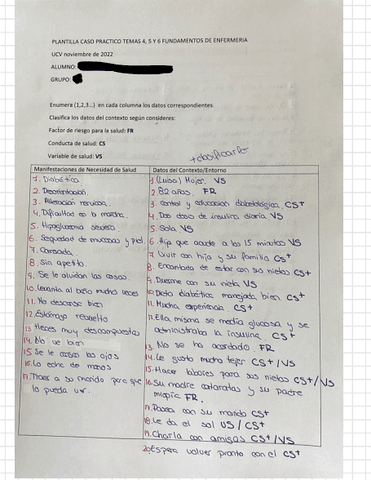 PLANTILLA CASO PRACTICO TEMAS 4, 5 Y 6 FUNDAMENTOS DE ENFERMERIA
UCV noviembre de 2022
ALUMNO:
GRUPO:
Enumera (1,2,3...) en cada columna los datos correspondientes.
Clasifica los datos del contexto según consideres:
Factor de riesgo para la salud: FR
Conducta de salud: CS
Variable de salud: VS
+ clasificarlo
Manifestaciones de Necesidad de Salud
1. Diabética
2. Desorientación
3. Alteración nerviosa
4. Dificultad en la marcha
5. Hipoglucemia severa
6. Sequedad de mucosas y piel
7. Cansada
8. Sin apetito
9. Se le olvidan las cosas
10. Levanta al baño muchas veces
11. No descansa bien
12. Estómago revuelto
13. Heces muy descompuestas
14. No ve bien
15. Se le cansan los ojos
16. Lo echa de menos
17. Traer a su marido para que
lo pueda ver.
Datos del Contexto/Entorno
1. (Luisa) Mujer. VS
2. 82 años. FR
3. control y educación diabetológica CS+
4. Dos dosis de insulina diaria VS
5. Sola VS
6. Hija que acude a los 15 minutos VS
7. Vivir con hija y su familia CS+
8. Encantada de estar con sus nietos CS+
9. Duerme con su nieta VS
10. Dieta diabética manejada bien CS+
11. Mucha experiencia CS+
12. Ella misma se medía glucosa y se
administraba la insulina CS+
13. No se ha acostado FR
14. Le gusta mucho tejer CS+/VS
15. Hacer labores para sus nietos CS+/VS
16. Su madre cataratas y su padre
miopía FR.
17. Pasea con su marido CS+
18. Le da el sol VS / CS+
19. Charla con amigas CS+/VS
20. Espera volver pronto con el CS+